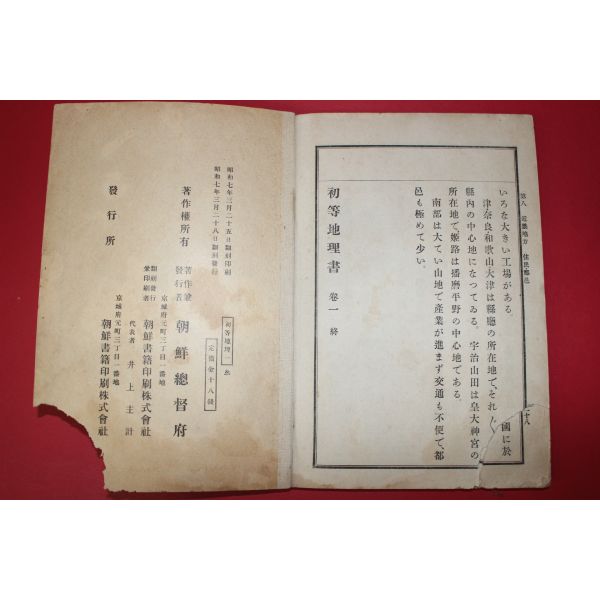 第八 近畿地方 住民・都邑
いろな大きい工場がある。
津奈良和歌山大津は縣廳の所在地で、それ
國に於
縣內の中心地になつてゐる。宇治山田は皇大神宮の
所在地で、姬路は播磨平野の中心地である。
南部は大てい山地で產業が進まず交通も不便で、都
邑も極めて少い。
初等地理書 卷一 終
昭和七年三月二十五日翻刻印刷
昭和七年三月二十八日翻刻發行
初等地理一
定價金十八錢
著作權所有
著作兼
發行者
朝鮮總督府
京城府元町三丁目一番地
翻刻發行
兼印刷者
朝鮮書籍印刷株式會社
代表者 井上主計
京城府元町三丁目一番地
發行所
朝鮮書籍印刷株式會社